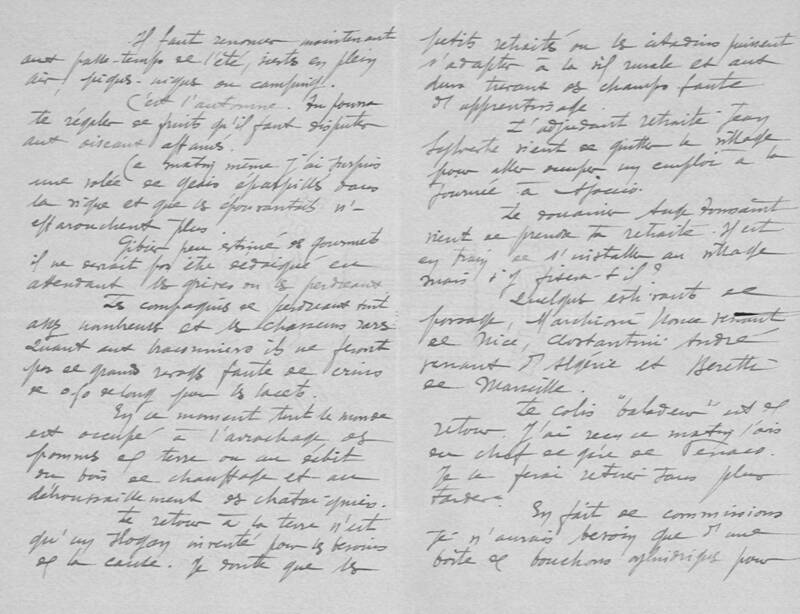 Il faut renoncer maintenant
aux passe-temps de l'été, siestes en plein
air, piques-niques ou camping.
C'est l'automne. Tu pourras
te régaler de fruits qu'il faut disputer
aux oiseaux affamés.
Ce matin même j'ai surpris
une volée de geais éparpillés dans
la vigne et que les épouvantails n'-
effarouchent plus.
Gibier peu estimé des gourmets
il ne serait pas été dédaigné en
attendant les grives ou les perdreaux
Les compagnies de perdreaux sont
assez nombreuses et les chasseurs rares
Quant aux braconniers ils ne feront
pas de grands ravages faute de crins
de 0,50 de long pour les lacets.
En ce moment tout le monde
est occupé à l'arrachage des
pommes de terre ou au débit
du bois de chauffage et au
débroussaillement des chataigniers.
Le retour à la terre n'est
qu'un slogan inventé pour les besoins
de la cause. Je doute que les
petits retraités ou les citadins puissent
s'adapter à la vie rurale et aux
durs travaux des champs faute
d'apprentissage.
L'adjudant retraité Jean
Sylvestre vient de quitter le village
pour aller occuper un emploi à la
à Ajaccio.
Le douanier Ange Toussaint
vient de prendre sa retraite. Il est
en train de s'installer au village
mais s'y fixera-t-il?
Quelques estivants de
passage, Marchioni venant
de Nice, Costantini André
venant d'Algérie et Beretti
de Marseille.
Le colis "baladeur" est de
retour. J'ai reçu ce matin l'avis
du chef de gare de
Je le ferai retirer sans plus
tarder.
En fait de commissions
je n'aurais besoin que d'une
boîte de bouchons cylindriques pour